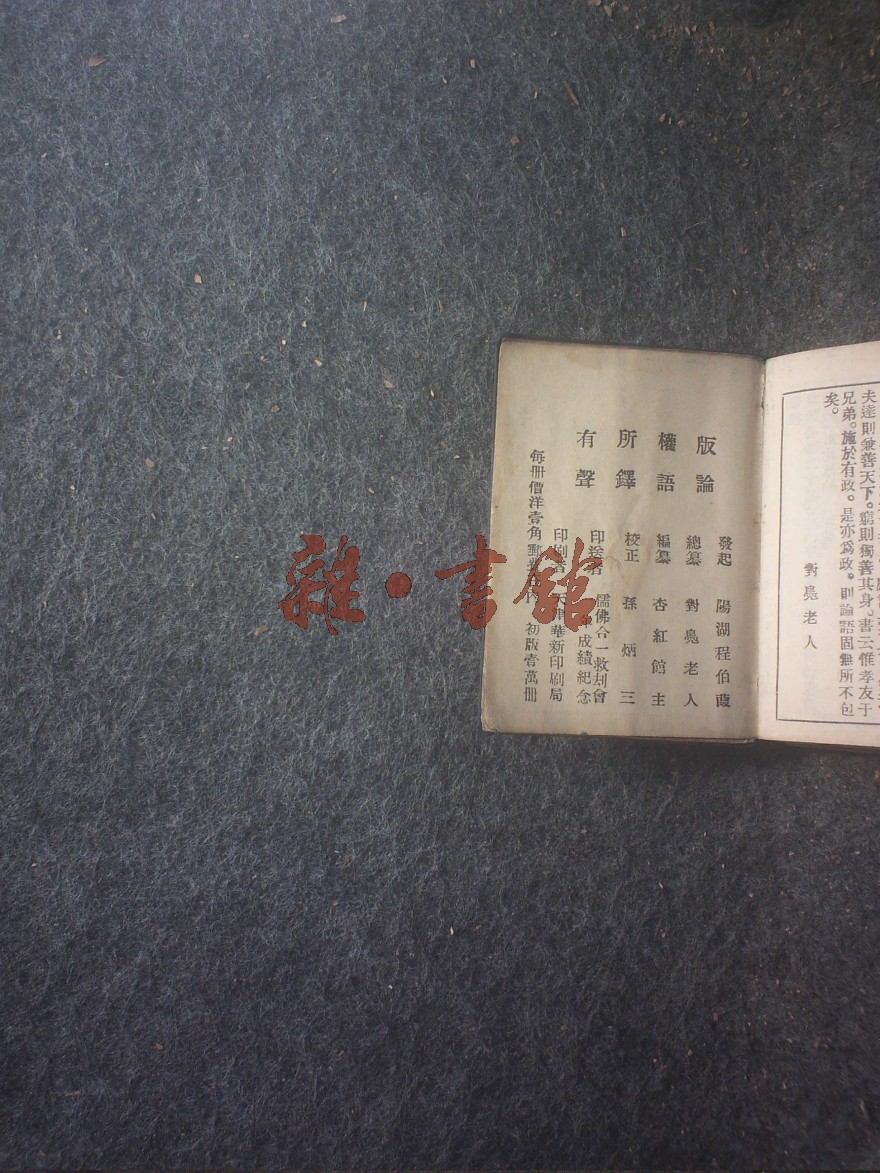 夫達則兼善天下。窮則獨善其身。書云惟孝友于
兄弟。施於有政。是亦爲政。則論語固無所不包
矣。
對鳧老人
版權所有
論語鐸聲
發起 陽湖程伯葭
總纂 對鳧老人
編纂 杏紅館主
校正 孫炳三
印送者 儒佛合一救刼會
成績紀念
印刷者 天津華新印刷局
每冊價洋壹角郵費 初版壹萬冊
雜·書館